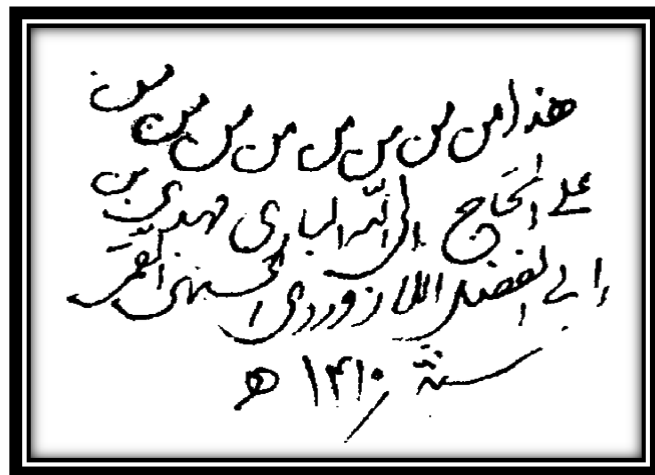 هذا من من من من من من من من
على المحتاج إلى الله الباري مهدي بن
ابي الفضل اللازوردي الحسيني القمي
سنة ۱۴۱۰ هـ